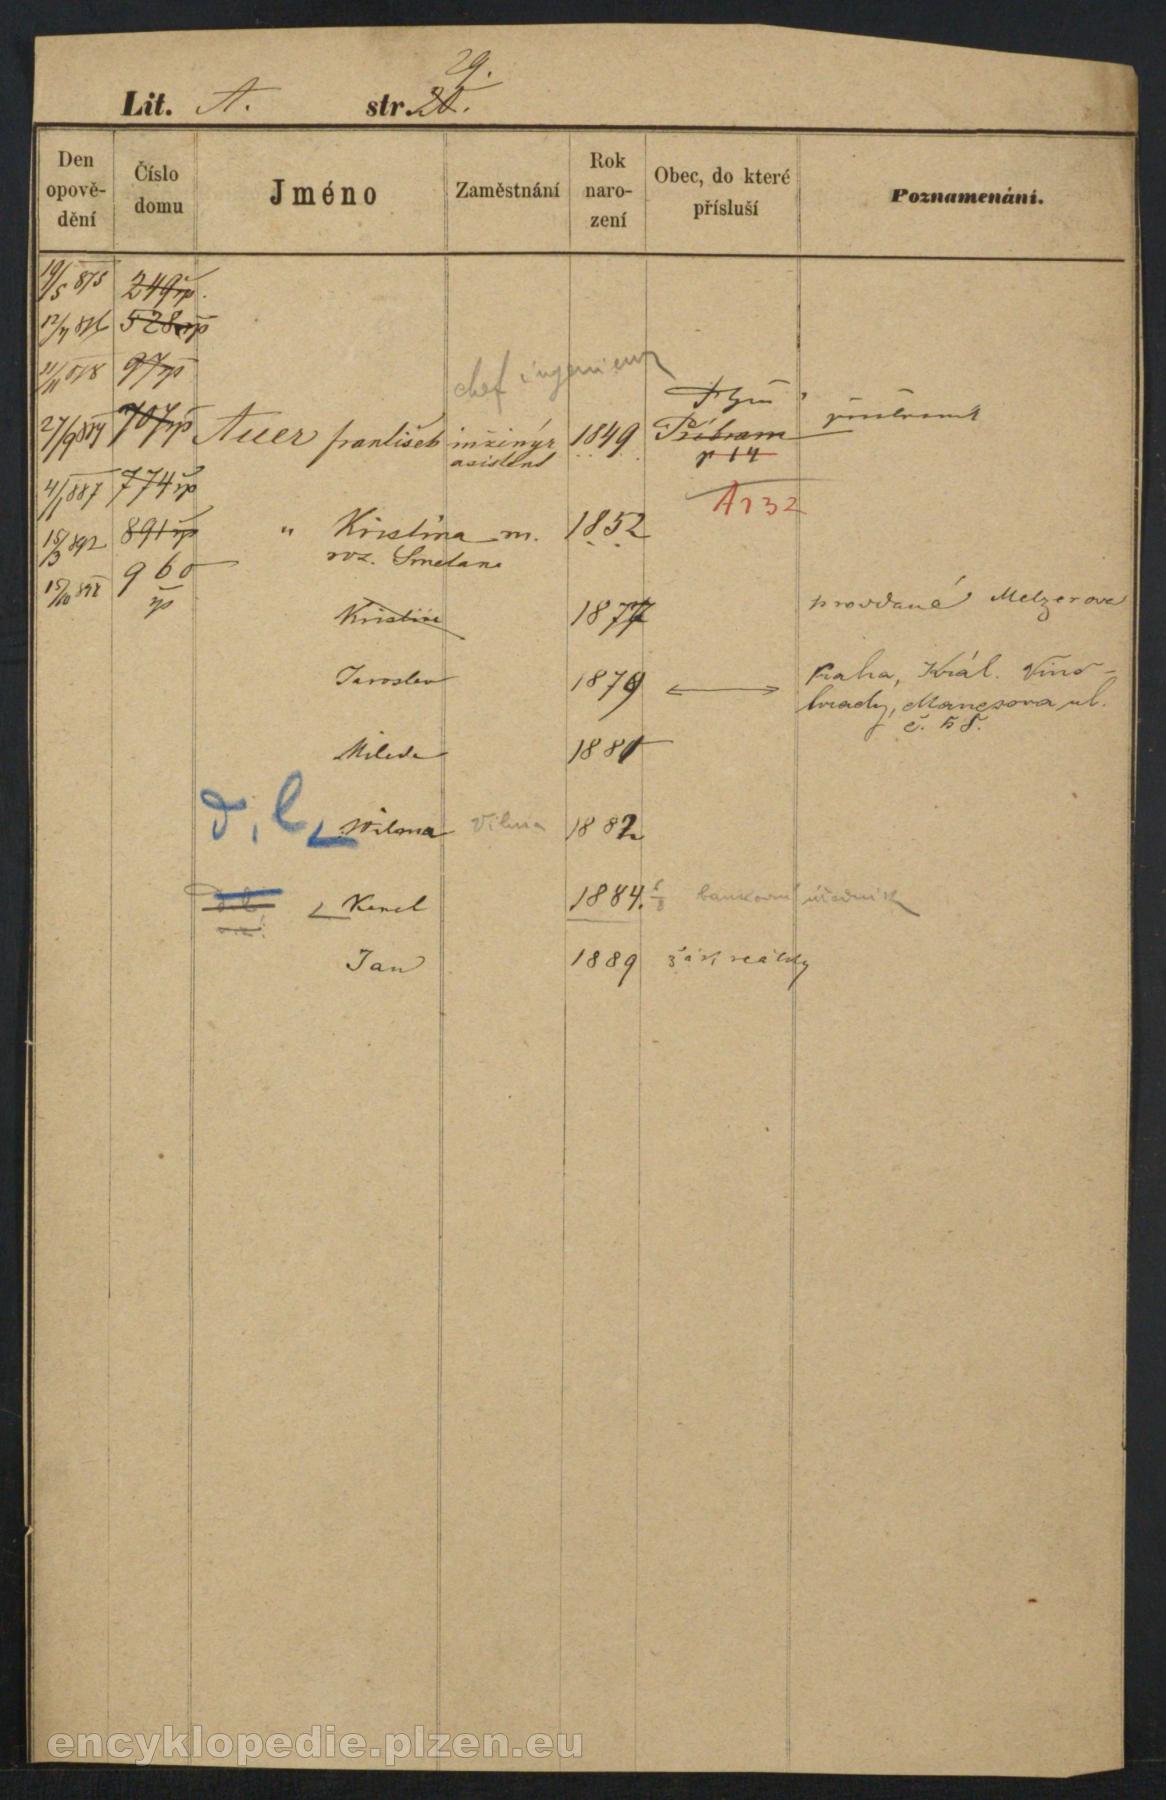 29.
Lit. A. str. 20.
Den opově- dění
Číslo domu
Jméno
Zaměstnání
Rok naro- zení
Obec, do které přísluší
Poznamenání.
19/5 875 249 vp.
12/4 876 528 vp
97 vp
chef ingenieur
27/9 707 vp Auer František inžinýr 1849 Příbram
asistent p 14
4/1 887 774 vp
A132
15/3 892 891 vp " Kristina m. 1852
roz. Smetana
15/10 960
vp
Kristina 1877 provdaná Melzerova
Jaroslav 1879 Praha, Král. Vino-
hrady, Manesova ul.
č. 58.
Milada 1880
d. l. Wilma Vilma 1882
Karel 1884. bankovní úředník
Jan 1889 žák reálky
encyklopedie.plzen.eu